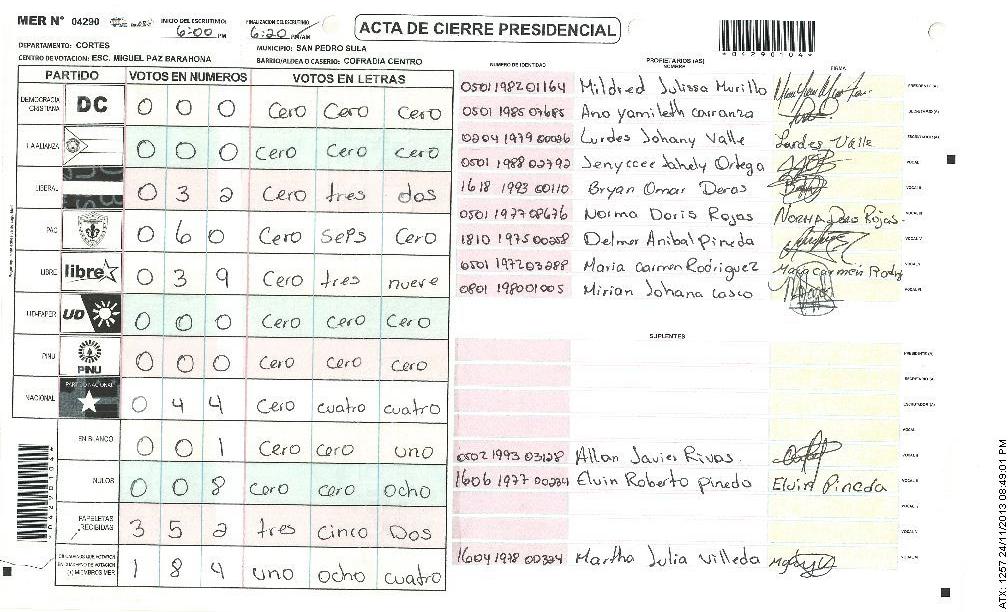 MER N° 04290
INICIO DEL ESCRUTINIO: 6:00 PM
FINALIZACION DEL ESCRUTINIO: 6:20 PM/AM
ACTA DE CIERRE PRESIDENCIAL
*04290104*
DEPARTAMENTO: CORTES
MUNICIPIO: SAN PEDRO SULA
CENTRO DE VOTACION: ESC. MIGUEL PAZ BARAHONA
BARRIO/ALDEA O CASERIO: COFRADIA CENTRO
PARTIDO VOTOS EN NUMEROS VOTOS EN LETRAS
DEMOCRACIA CRISTIANA DC 0 0 0 Cero Cero Cero
LA ALIANZA 0 0 0 Cero Cero Cero
LIBERAL 0 3 2 Cero tres dos
PAC 0 6 0 Cero Seps Cero
LIBRE libre 0 3 9 Cero tres nueve
UD-FAPER UD 0 0 0 Cero Cero Cero
PINU PINU 0 0 0 Cero Cero Cero
NACIONAL PARTIDO NACIONAL 0 4 4 Cero cuatro cuatro
EN BLANCO 0 0 1 Cero cero uno
NULOS 0 0 8 Cero cero ocho
PAPELETAS RECIBIDAS 3 5 2 tres Cinco Dos
CIUDADANOS QUE VOTARON EN CUADERNO DE VOTACION (+) MIEMBROS MER 1 8 4 uno ocho cuatro
NUMERO DE IDENTIDAD PROPIETARIOS (AS) NOMBRE FIRMA
0501198201164 Mildred Julissa Murillo PRESIDENTE(A)
0501 1985 07685 Ana yamileth carranza SECRETARIO(A)
0204 1979 00026 Lurdes Johany Valle Lurdes Valle ESCRUTADOR(A)
0501 1988 02792 Jenyccee Jahely Ortega VOCAL I
1618 1993 00110 Bryan Omar Deras VOCAL II
0501 1977 08676 Norma Doris Rojas Norma Doris Rojas VOCAL III
1810 1975 00258 Delmer Anibal Pineda VOCAL IV
0501 1972 03288 Maria Carmen Rodriguez Maria Carmen Rodrig VOCAL V
0801 198001005 Mirian Johana Casco VOCAL VI
SUPLENTES
PRESIDENTE(A)
SECRETARIO(A)
ESCRUTADOR(A)
VOCAL I
0502 1993 03128 Allan Javier Rivas VOCAL II
1606 1977 00234 Elvin Roberto Pineda Elvin Pineda VOCAL III
VOCAL IV
VOCAL V
1604 1978 00324 Martha Julia Villeda VOCAL VI
ATX: 1257 24/11/2013 08:49:01 PM